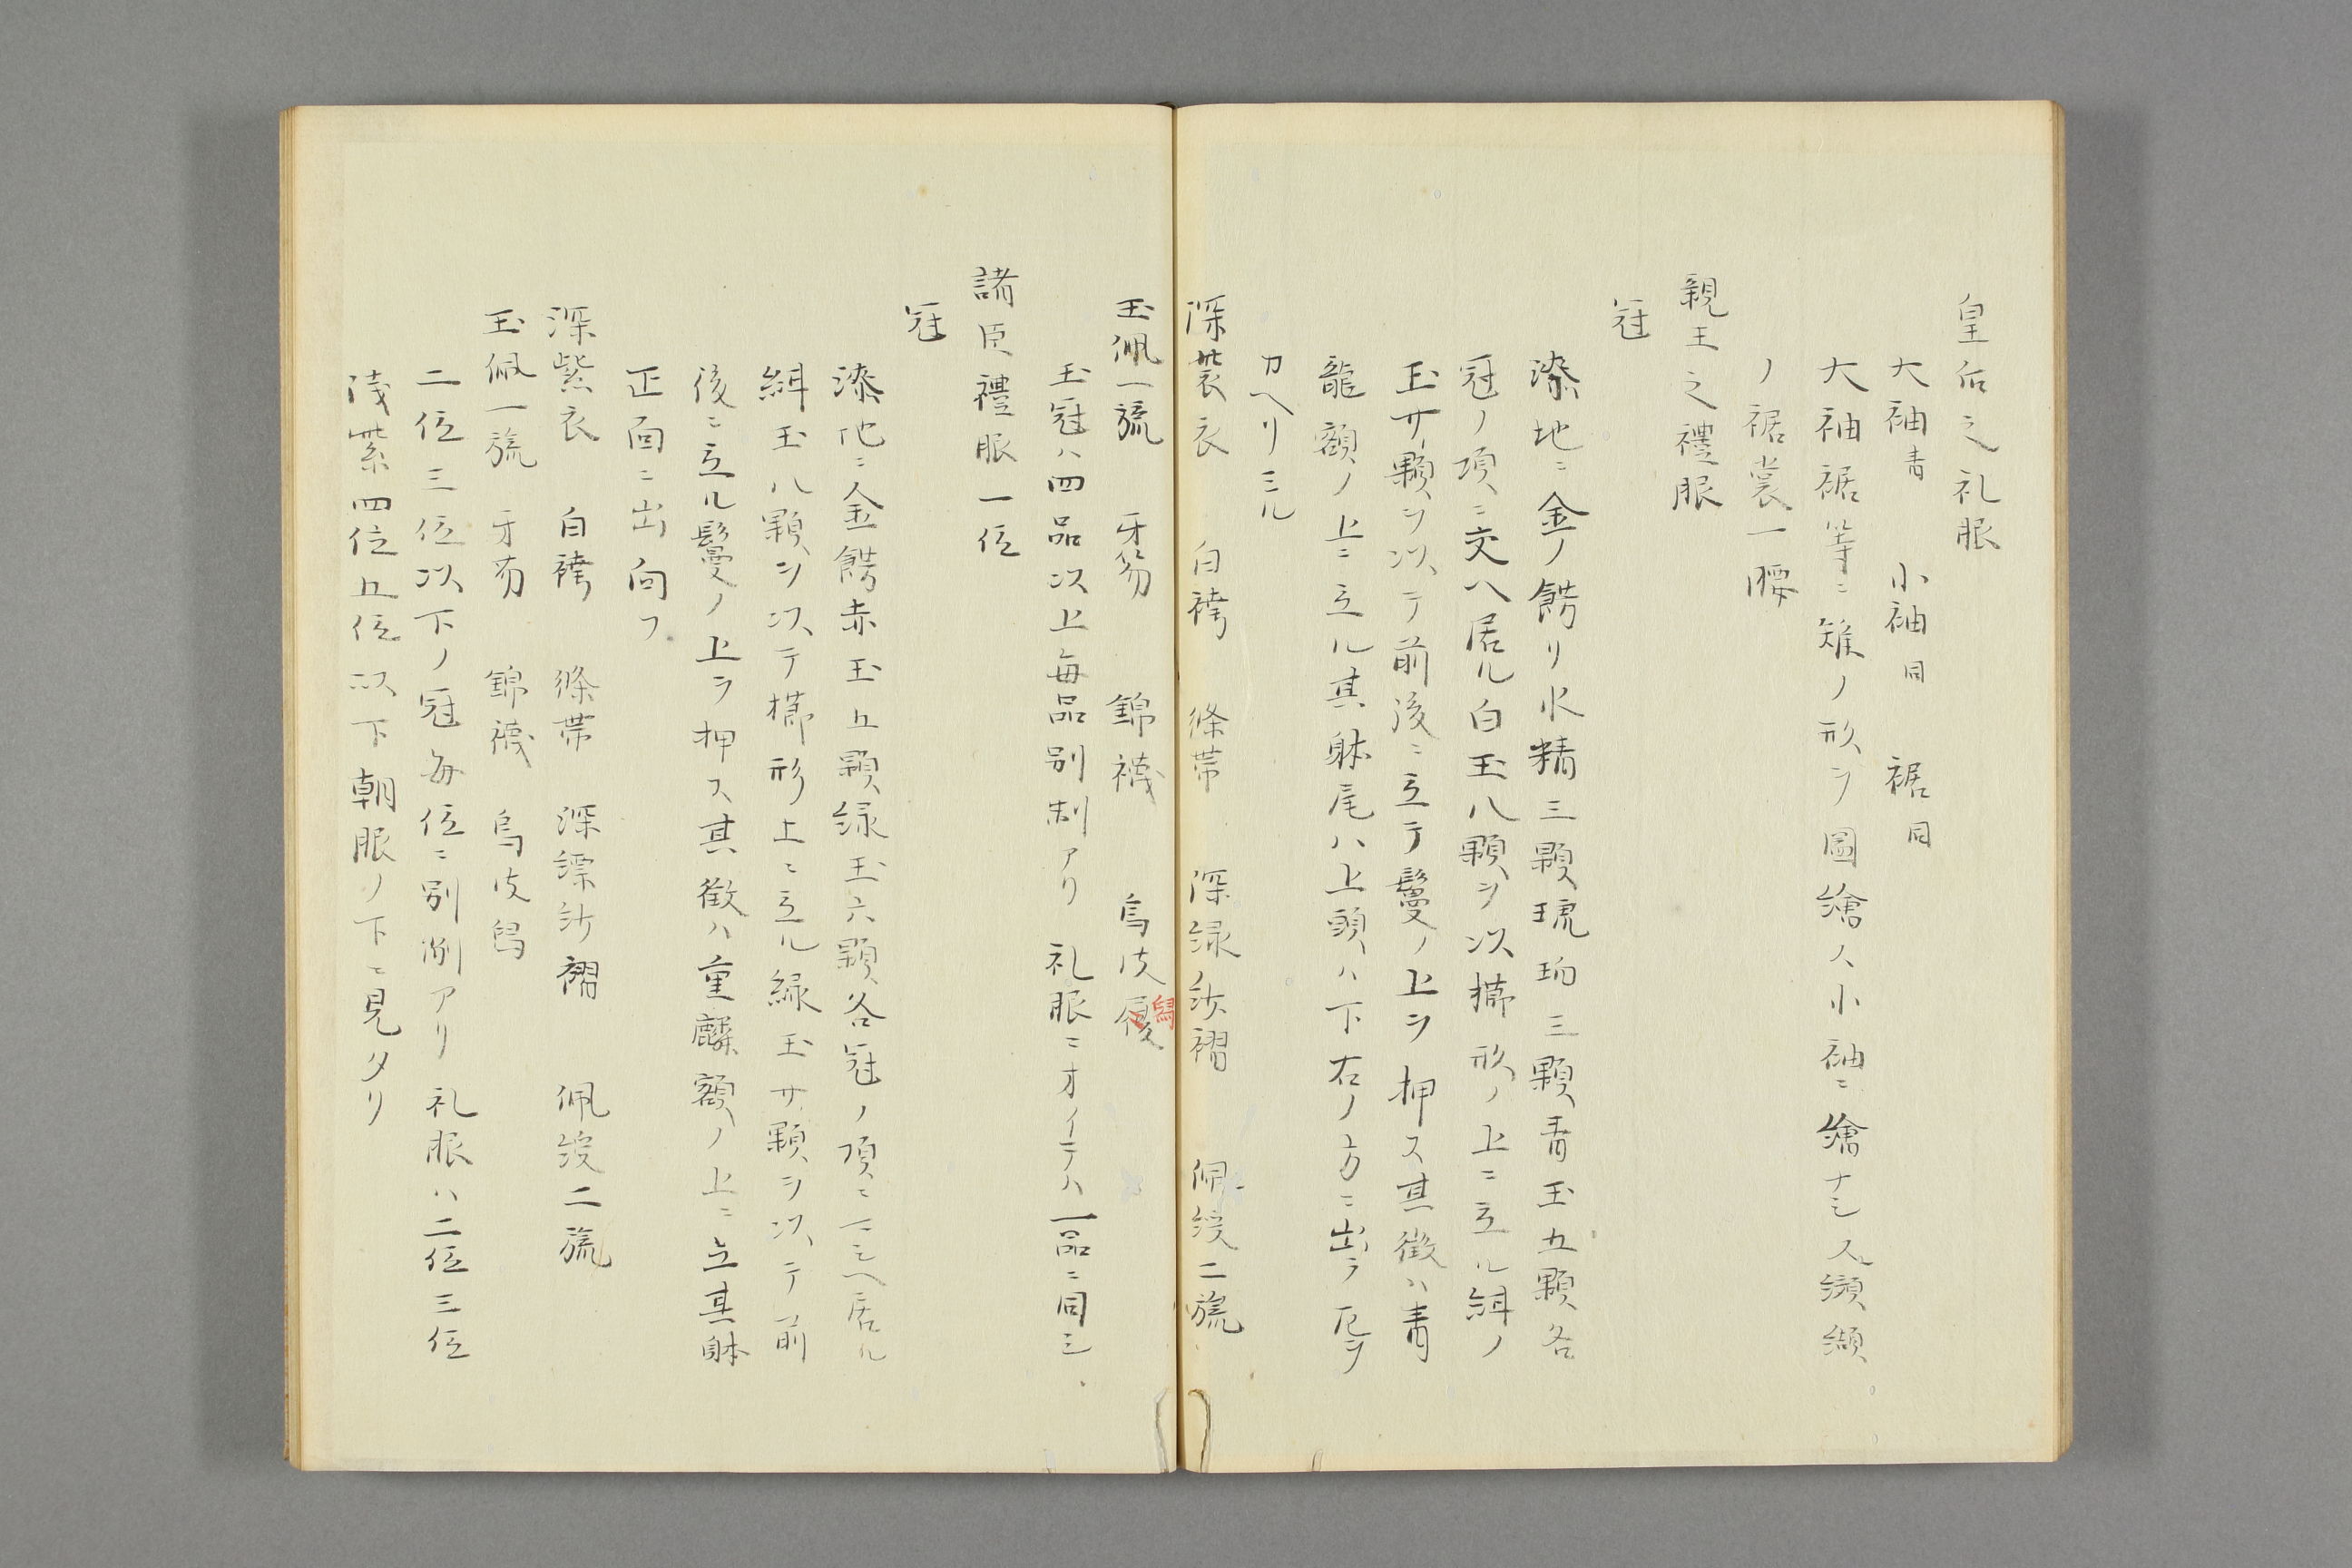 皇后之礼服
大袖青 小袖同 裾同
大袖裾等ニ雉ノ形ヲ圖繪ス小袖ニ繪ナシ又纐纈
ノ裾裳一腰
親王之禮服
冠
漆地ニ金ノ餝リ水精三顆琥珀三顆青玉五顆各
冠ノ項ニ交ヘ居ル白玉八顆ヲ以櫛形ノ上ニ立ル緝ノ
玉廾顆ヲ以テ前後ニ立テ鬘ノ上ヲ押ス其徴ハ青
龍額ノ上ニ立ル其躰尾ハ上頭ハ下右ノ方ニ出テ尾ヲ
カヘリミル
深紫衣 白袴 絛帯 深緑ノ紗褶 佩綬二旒
玉佩一旒 牙笏 錦襪 烏皮履舄
玉冠ハ四品以上毎品別制アリ 礼服ニオイテハ一品ニ同シ
諸臣禮服一位
冠
漆地ニ金餝赤玉五顆緑玉六顆各冠ノ項ニマシヘ居ル
緝玉八顆ヲ以テ櫛形上ニ立ル緑玉廾顆ヲ以テ前
後ニ立ル鬘ノ上ヲ押ス其徴ハ重麟額ノ上ニ立其躰
正面ニ出向フ
深紫衣 白袴 絛帯 深縹紗褶 佩綬二旒
玉佩一旒 牙笏 錦襪 烏皮舄
二位三位以下ノ冠毎位ニ別制アリ 礼服ハ二位三位
浅紫四位五位以下朝服ノ下ニ見タリ